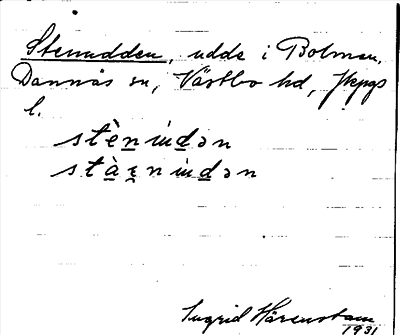 Stenudden, udde i Bolmen,
Dannäs sn, Västbo hd, Jkpgs
l.
stènúdən
stàɛnúdən
Ingrid Härenstam
1931